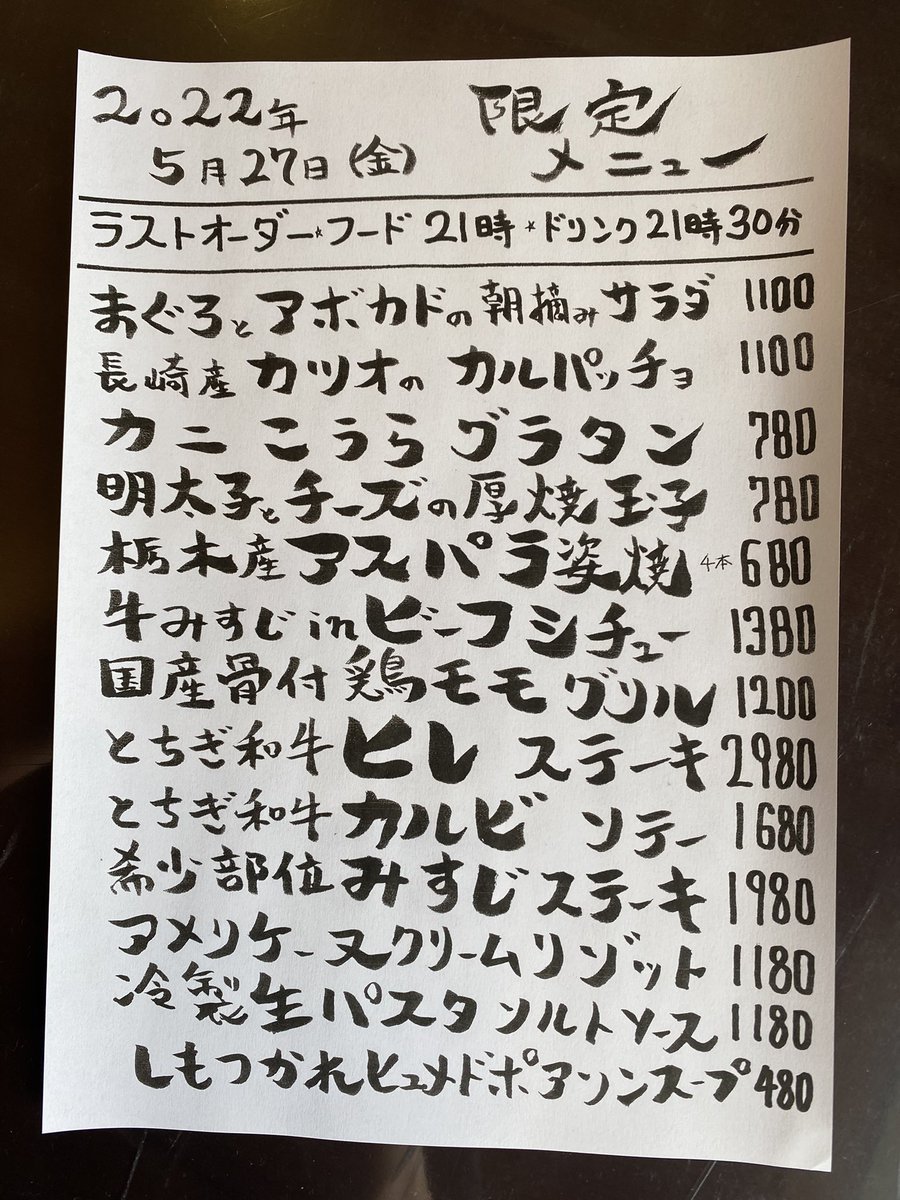 2022年 限定
5月27日(金) メニュー
ラストオーダー★フード 21時★ドリンク21時30分
まぐろとアボカドの朝摘みサラダ 1100
長崎産カツオのカルパッチョ 1100
カニこうらグラタン 780
明太子とチーズの厚焼玉子 780
栃木産アスパラ姿焼 4本 680
牛みすじinビーフシチュー 1380
国産骨付鶏モモグリル 1200
とちぎ和牛ヒレステーキ 2980
とちぎ和牛カルビソテー 1680
希少部位みすじステーキ 1980
アメリケーヌクリームリゾット 1180
冷製生パスタソルトソース 1180
しもつかれヒュメドポアソンスープ 480